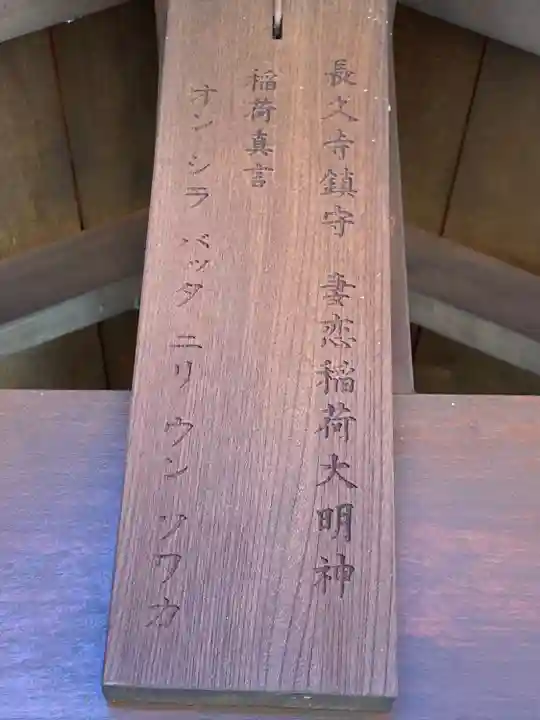 長文寺鎮守 妻恋稲荷大明神
稲荷真言
オン シラ バッタ ニリ ウン ソワカ